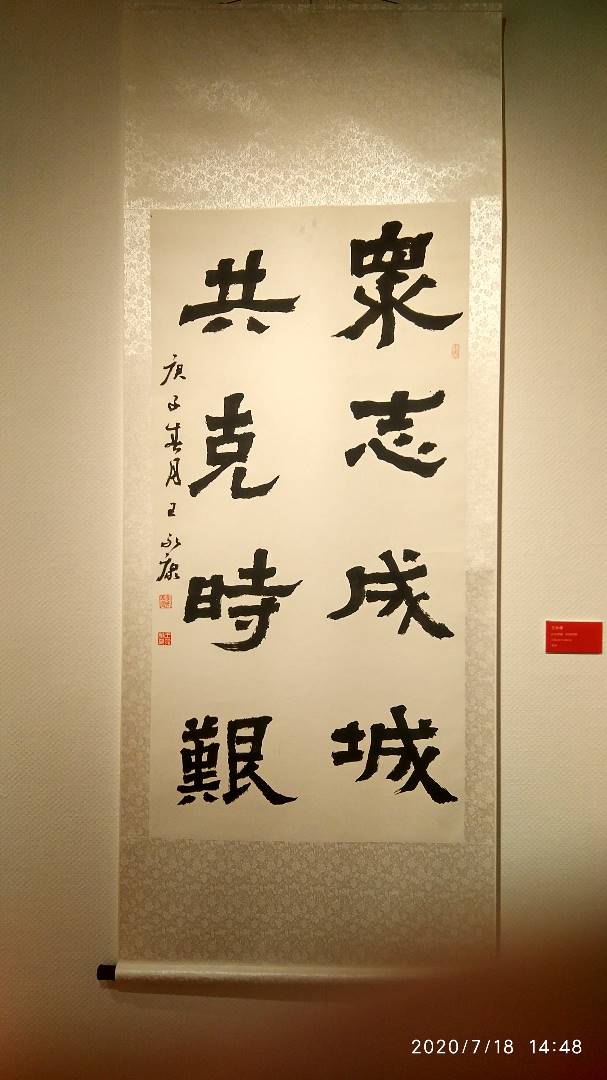 眾志成城
共克時艱
庚子春月王永康
2020/7/18 14:48